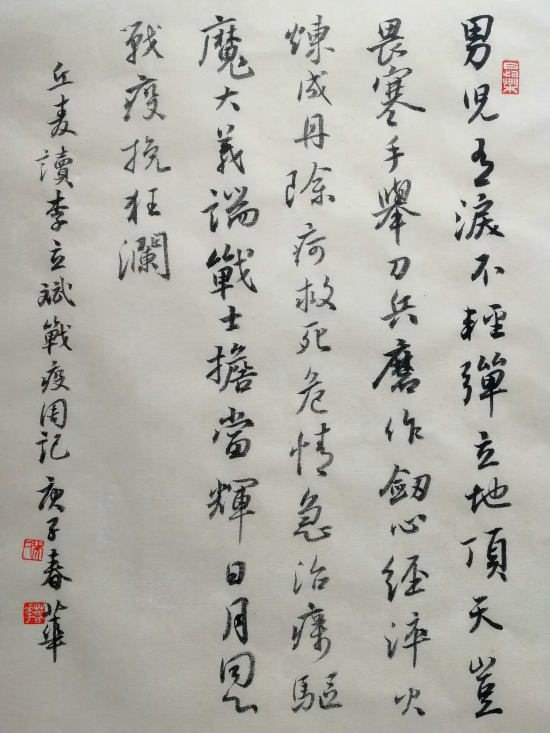 男兒有淚不輕彈立地頂天豈
畏寒手舉刀兵磨作劒心經淬火
煉成丹除疴救死危情急治療驅
魔大義端戰士擔當輝日月同心
戰疫挽狂瀾
丘麦讀李立斌戰疫周記庚子春華